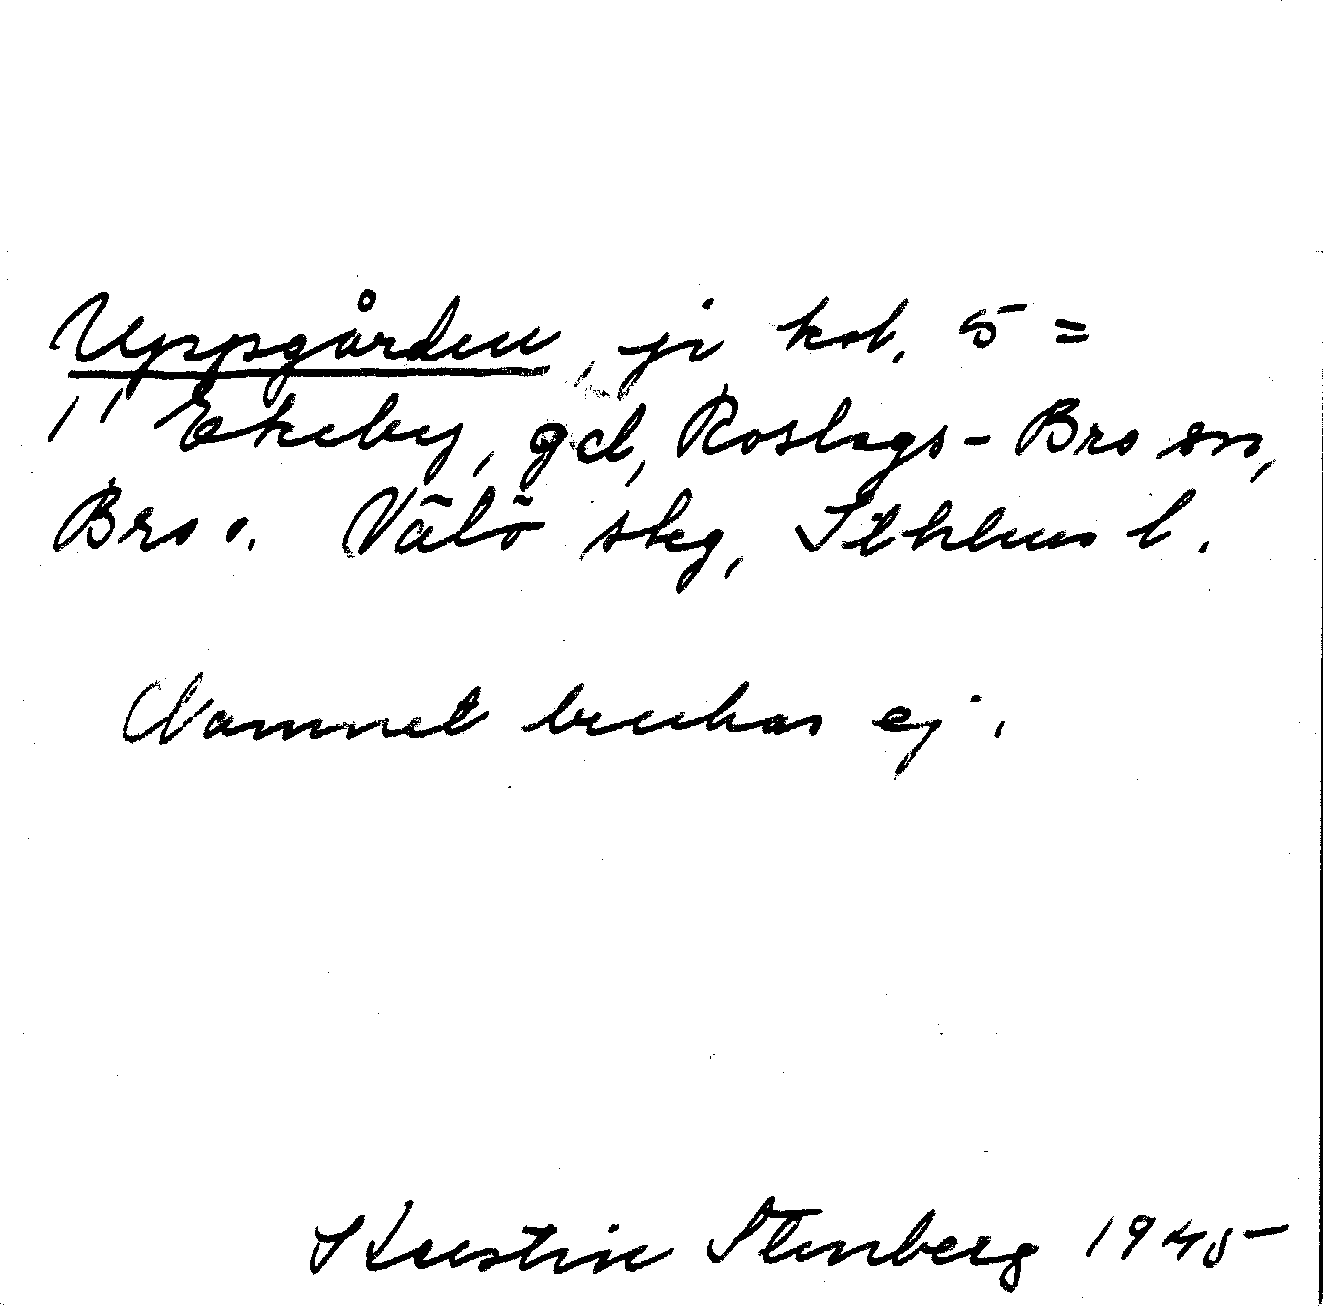 Uppgården, ji kol. 5 =
1" Ekeby, gd, Roslags-Bro sn,
Bro o. Vätö skg, Sthlms l.
Namnet brukas ej.
Kerstin Stenberg 1945